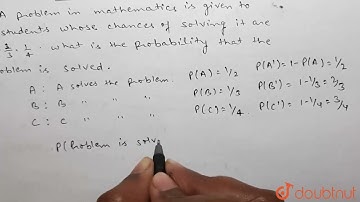 A problem in mathematics is given to
students whose chances of solving it are
1/3, 1/4. what is the probability that the
oblem is solved.
A : A solves the problem. P(A) = 1/2 P(A') = 1 - P(A) = 1/2
B : B " " " P(B) = 1/3 P(B') = 1 - 1/3 = 2/3
C : C " " " P(C) = 1/4 P(C') = 1 - 1/4 = 3/4
P(Problem is solve
doubtnut